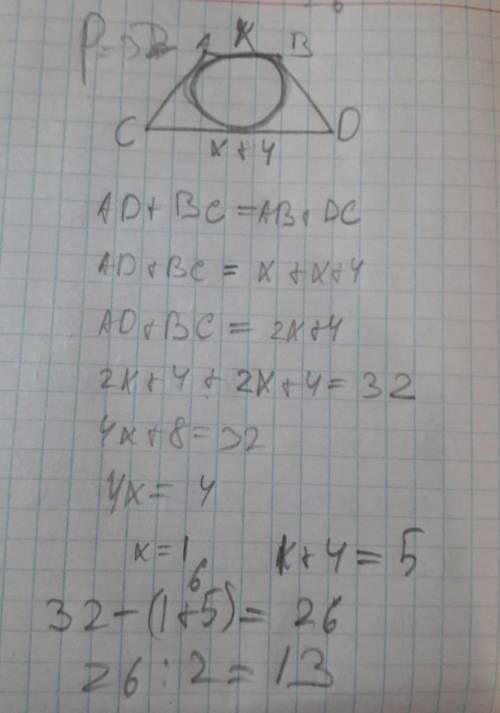 P=32 A x B
C D
x+4
AD+BC=AB+DC
AD+BC=x+x+4
AD+BC=2x+4
2x+4+2x+4=32
4x+8=32
4x=4
x=1 x+4=5
6
32-(1+5)=26
26:2=13